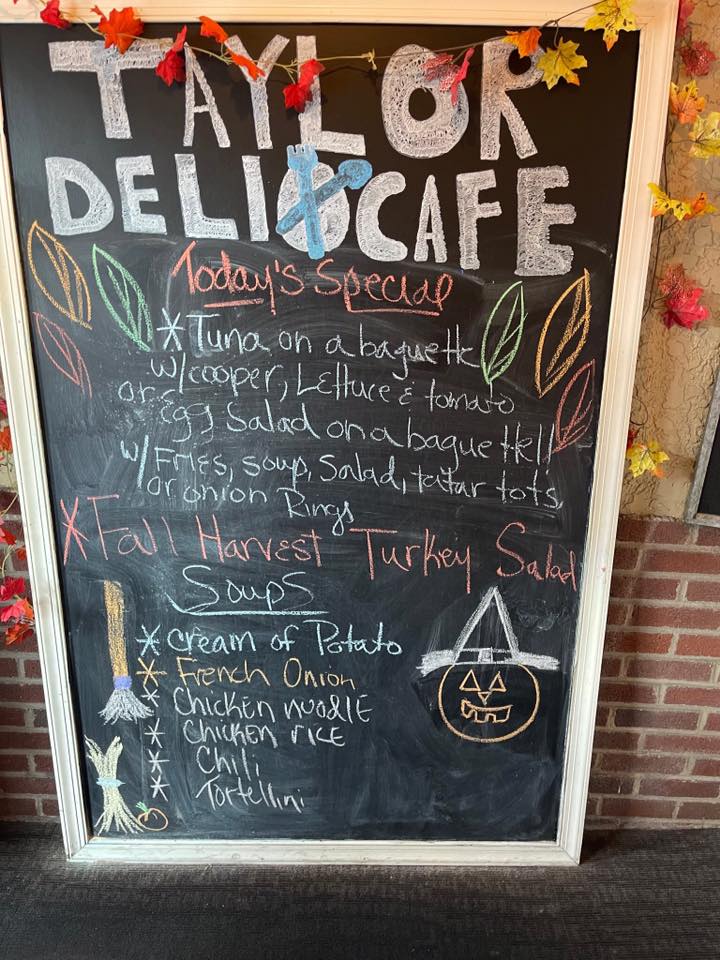 TAYLOR
DELI & CAFE
Today's Special
* Tuna on a baguette
w/cooper, Lettuce & tomato
or Egg Salad on a baguette!!
w/Fries, soup, Salad, tatar tots,
or onion Rings
* Fall Harvest Turkey Salad
Soups
* Cream of Potato
* French Onion
* Chicken noodle
* Chicken rice
* Chili
* Tortellini